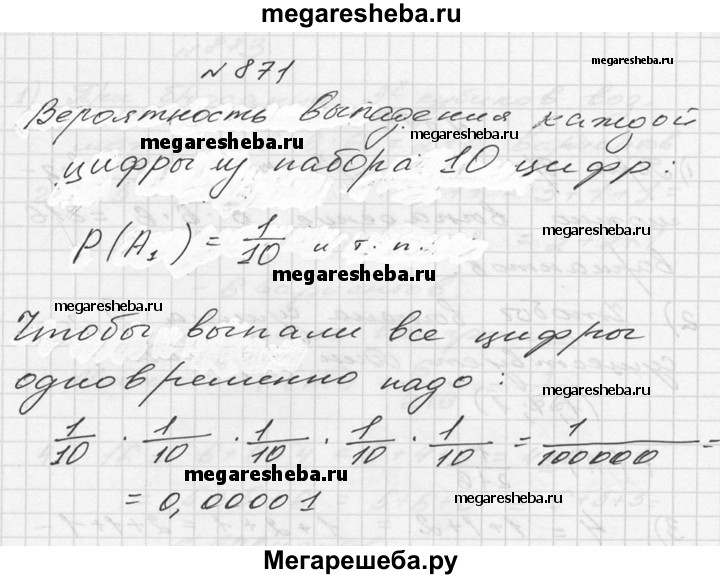 megaresheba.ru
megaresheba.ru
№ 871
Вероятность выпадения каждой
megaresheba.ru
megaresheba.ru
цифры из набора 10 цифр:
P(A₁) = 1/10 и т. п.
megaresheba.ru
megaresheba.ru
megaresheba.ru
Чтобы выпали все цифры
одновременно надо:
megaresheba.ru
1/10 · 1/10 · 1/10 · 1/10 · 1/10 = 1/100000 =
megaresheba.ru
= 0,00001
megaresheba.ru
Мегарешеба.ру